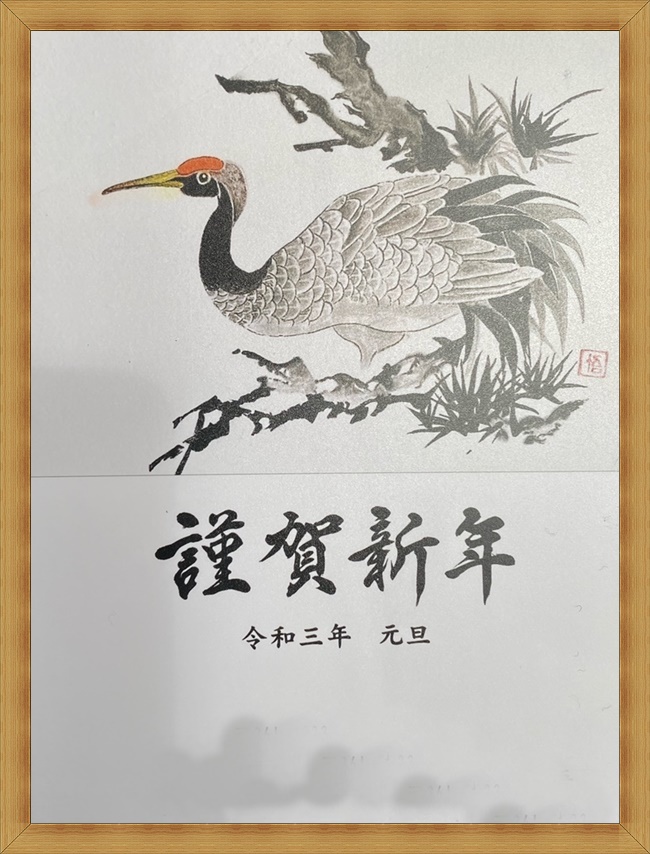 悟
謹賀新年
令和三年 元旦